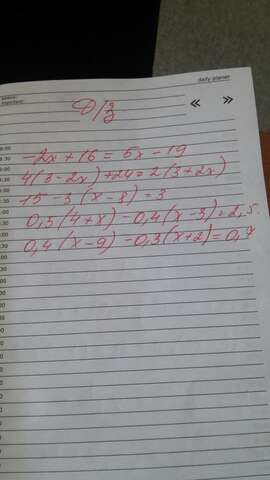 daily planer
Д/З
« »
-2x + 16 = 5x - 19
4(3 - 2x) + 24 = 2(3 + 2x)
15 - 3(x - 8) = 3
0,5(4 + x) - 0,4(x - 3) = 2,5.
0,4(x - 9) - 0,3(x + 2) = 0,7